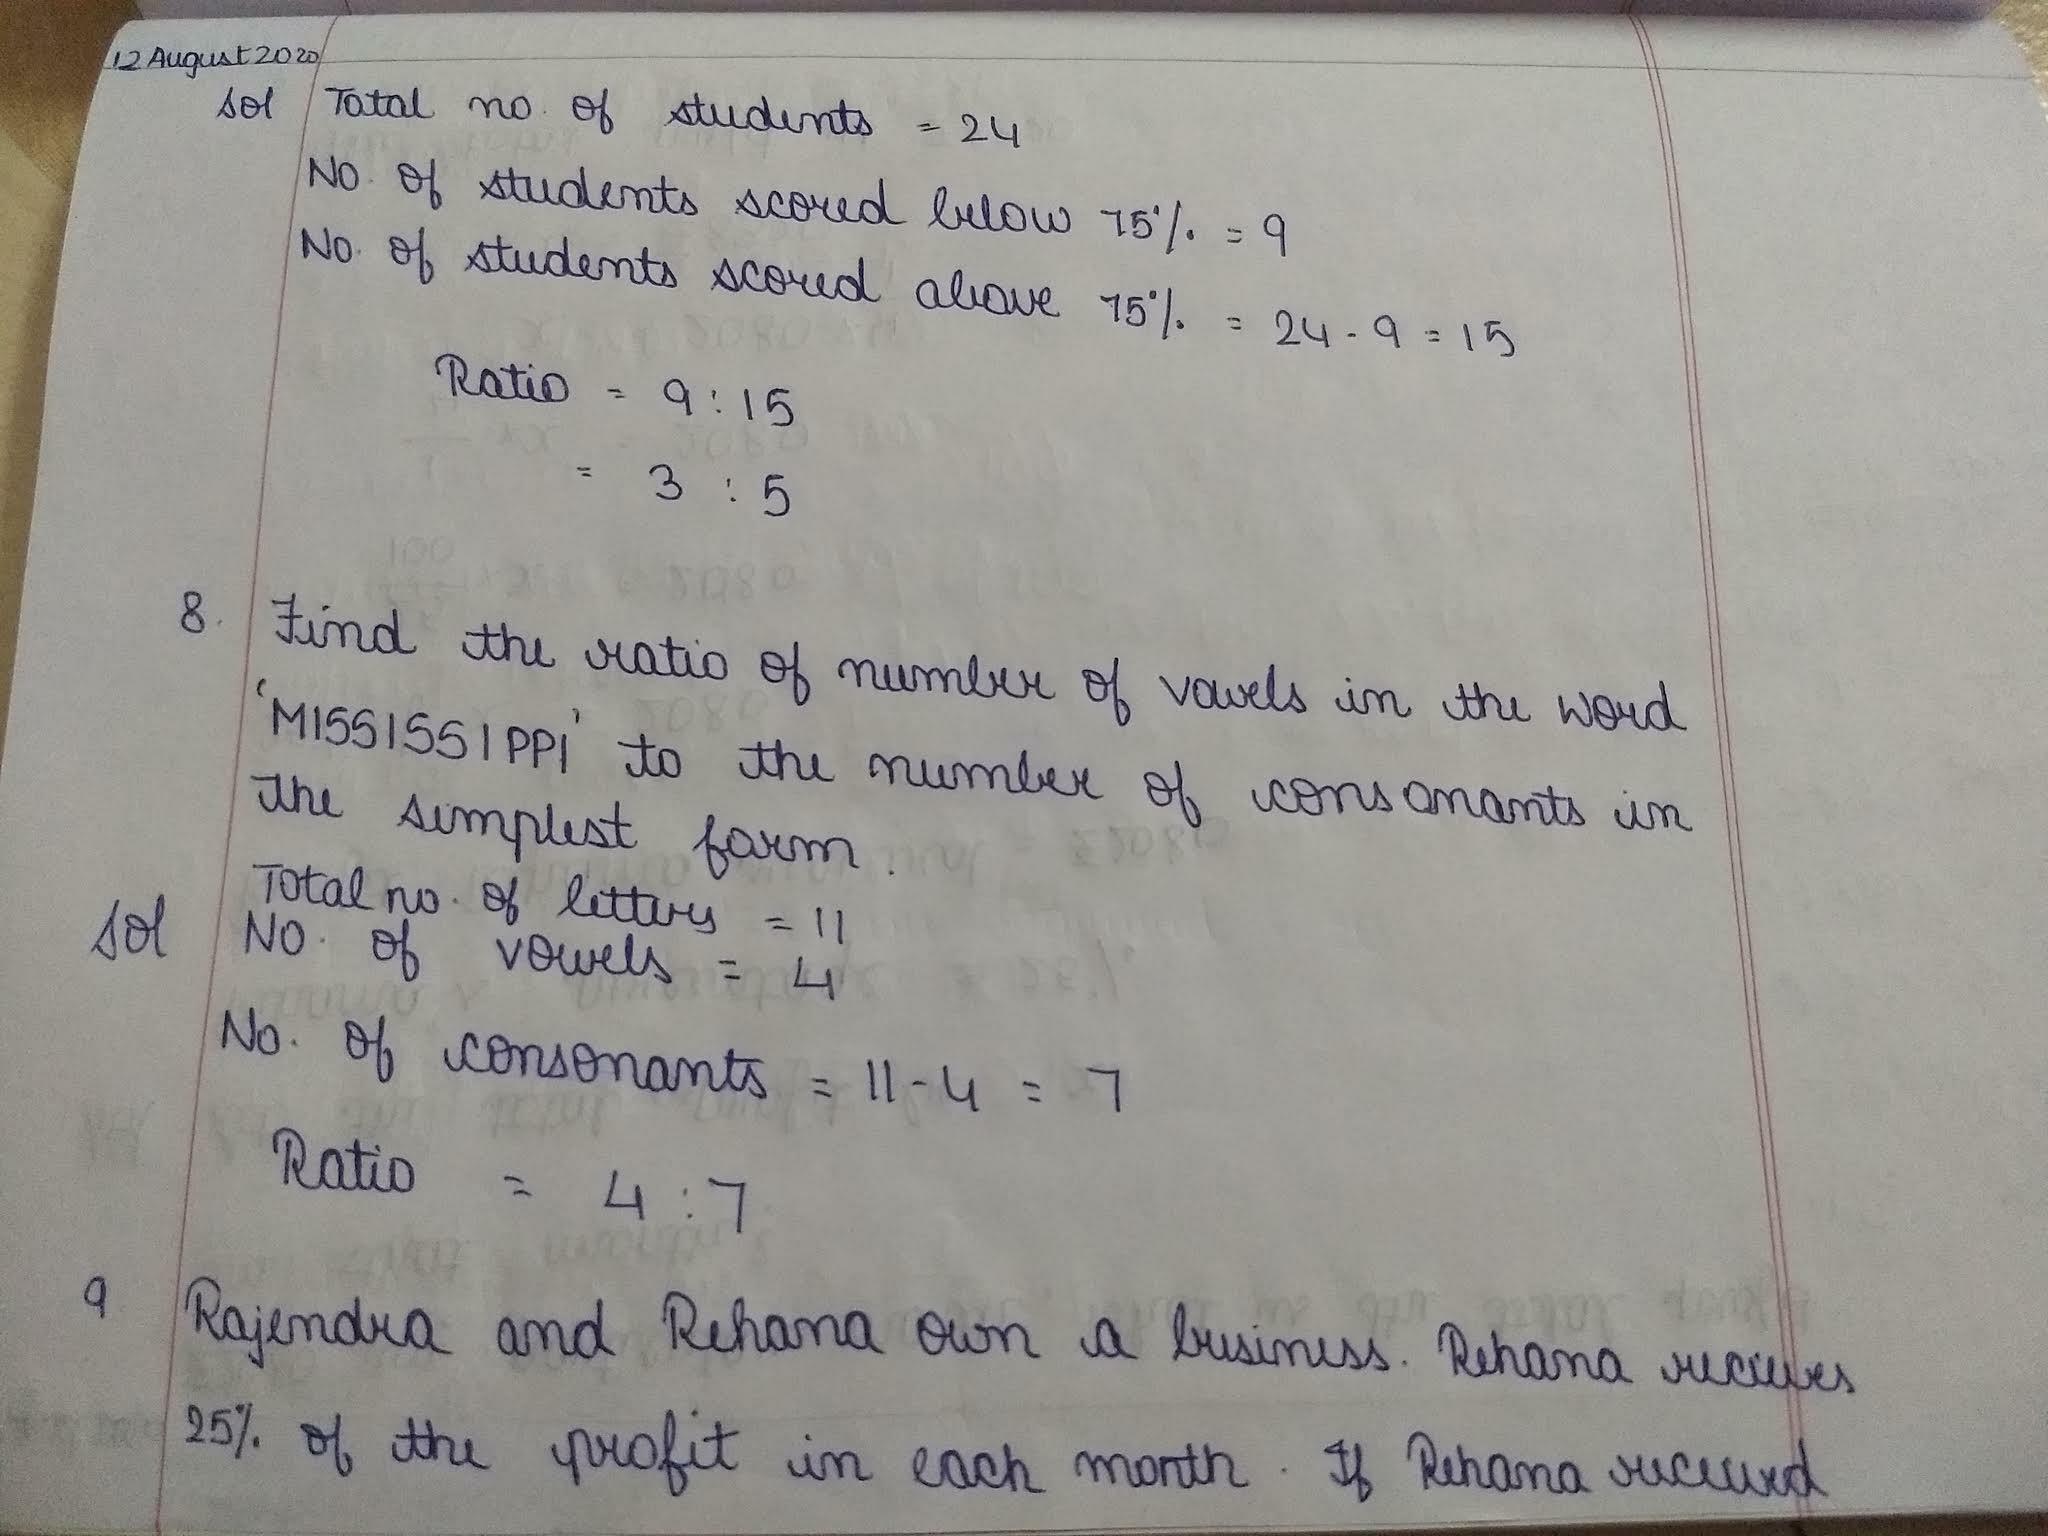 12 August 2020
Sol Total no. of students = 24
No. of students scored below 75% = 9
No. of students scored above 75% = 24 - 9 = 15
Ratio = 9 : 15
= 3 : 5
8. Find the ratio of number of vowels in the word
'MISSISSIPPI' to the number of consonants in
the simplest form.
Total no. of letters = 11
Sol No. of vowels = 4
No. of consonants = 11 - 4 = 7
Ratio = 4 : 7
9 Rajendra and Rehana own a business. Rehana receives
25% of the profit in each month. If Rehana received